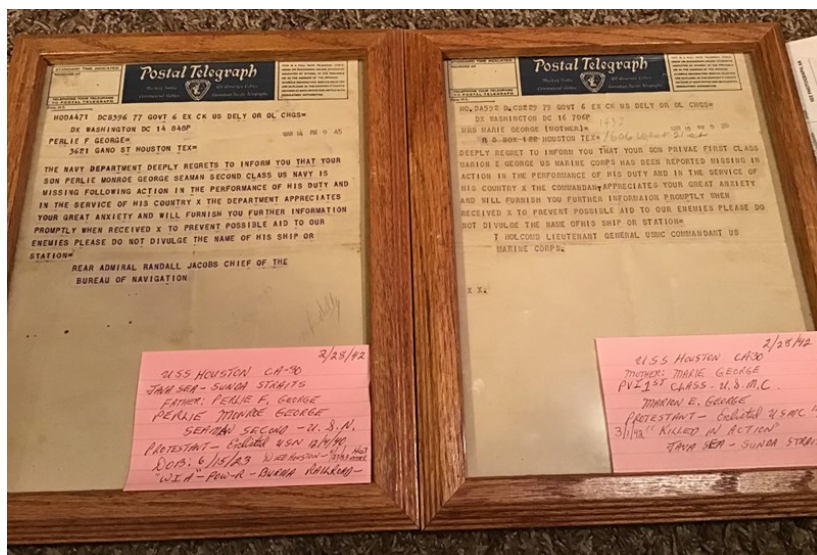 Postal Telegraph
STANDARD TIME INDICATED
TELEPHONE YOUR TELEGRAMS
TO POSTAL TELEGRAPH
HODA471 DCB396 77 GOVT 6 EX CK US DELY OR DL CHGS=
DX WASHINGTON DC 14 848P
PERLIE F GEORGE=
3621 GANO ST HOUSTON TEX=
THE NAVY DEPARTMENT DEEPLY REGRETS TO INFORM YOU THAT YOUR
SON PERLIE MONROE GEORGE SEAMAN SECOND CLASS US NAVY IS
MISSING FOLLOWING ACTION IN THE PERFORMANCE OF HIS DUTY AND
IN THE SERVICE OF HIS COUNTRY X THE DEPARTMENT APPRECIATES
YOUR GREAT ANXIETY AND WILL FURNISH YOU FURTHER INFORMATION
PROMPTLY WHEN RECEIVED X TO PREVENT POSSIBLE AID TO OUR
ENEMIES PLEASE DO NOT DIVULGE THE NAME OF HIS SHIP OR
STATION=
REAR ADMIRAL RANDALL JACOBS CHIEF OF THE
BUREAU OF NAVIGATION
2/28/42
USS HOUSTON CA-30
JAVA SEA - SUNDA STRAITS
FATHER: PERLIE F. GEORGE
PERLIE MONROE GEORGE
SEAMAN SECOND - U.S.N.
PROTESTANT - Enlisted USN 12/4/40
DOB: 6/15/23
"WIA" - POW-R - BURMA RAILROAD -
Postal Telegraph
STANDARD TIME INDICATED
TELEPHONE YOUR TELEGRAMS
TO POSTAL TELEGRAPH
79 GOVT 6 EX CK US DELY OR DL CHGS=
DX WASHINGTON DC 16 706P
MRS MARIE GEORGE (MOTHER)=
BOX HOUSTON TEX=
DEEPLY REGRET TO INFORM YOU THAT YOUR SON PRIVAE FIRST CLASS
MARION E GEORGE US MARINE CORPS HAS BEEN REPORTED MISSING IN
ACTION IN THE PERFORMANCE OF HIS DUTY AND IN THE SERVICE OF
HIS COUNTRY X THE COMMANDAN APPRECIATES YOUR GREAT ANXIETY
AND WILL FURNISH YOU FURTHER INFORMATION PROMPTLY WHEN
RECEIVED X TO PREVENT POSSIBLE AID TO OUR ENEMIES PLEASE DO
NOT DIVULGE THE NAME OFHIS SHIP OR STATION=
T HOLCOMB LIEUTENANT GENERAL USMC COMMANDANT US
MARINE CORPS.
X X.
2/28/42
USS HOUSTON CA30
MOTHER: MARIE GEORGE
PVT 1ST CLASS - U.S.M.C.
MARION E. GEORGE
PROTESTANT - Enlisted USMC
3/1/42 "KILLED IN ACTION"
JAVA SEA - SUNDA